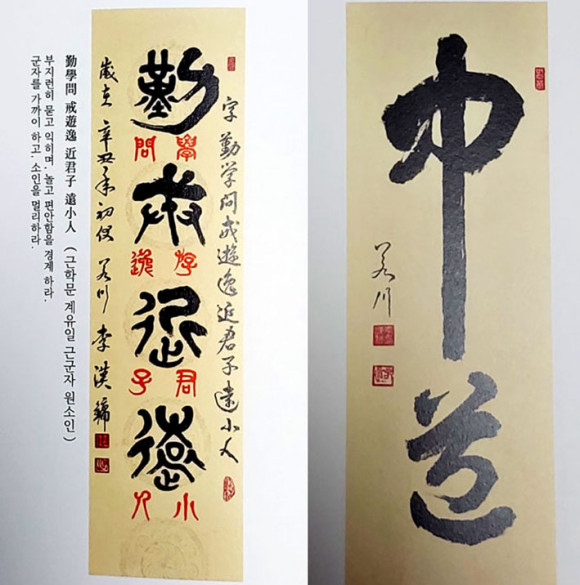 字 勤学问戒遊逸近君子遠小人
勤
學問
戒
遊逸
近
君子
遠
小人
歲在 辛丑年 初伏 若川 李
勤學問 戒遊逸 近君子 遠小人 (근학문 계유일 근군자 원소인)
부지런히 묻고 익히며, 놀고 편안함을 경계 하라.
군자를 가까이 하고, 소인을 멀리하라.
中道
若川